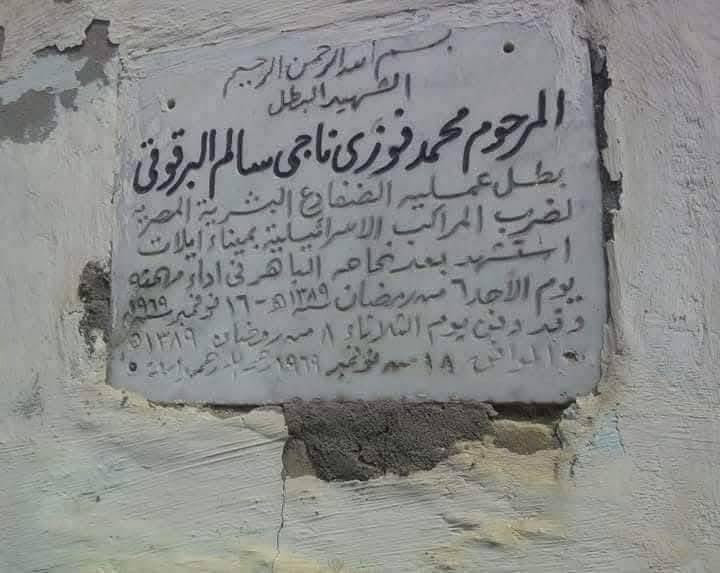 بسم الله الرحمن الرحيم
الشهيد البطل
المرحوم محمد فوزى ناجى سالم البرقوقى
بطل عملية الضفادع البشرية المصرية
لضرب المراكب الاسرائيلية بميناء ايلات
استشهد بعد نجاحه الباهر فى اداء مهمته
يوم الأحد ٦ من رمضان سنة ١٣٨٩هـ - ١٦ نوفمبر سنة ١٩٦٩
وقد دفن يوم الثلاثاء ٨ من رمضان ١٣٨٩هـ
الموافق ١٨ من نوفمبر ١٩٦٩